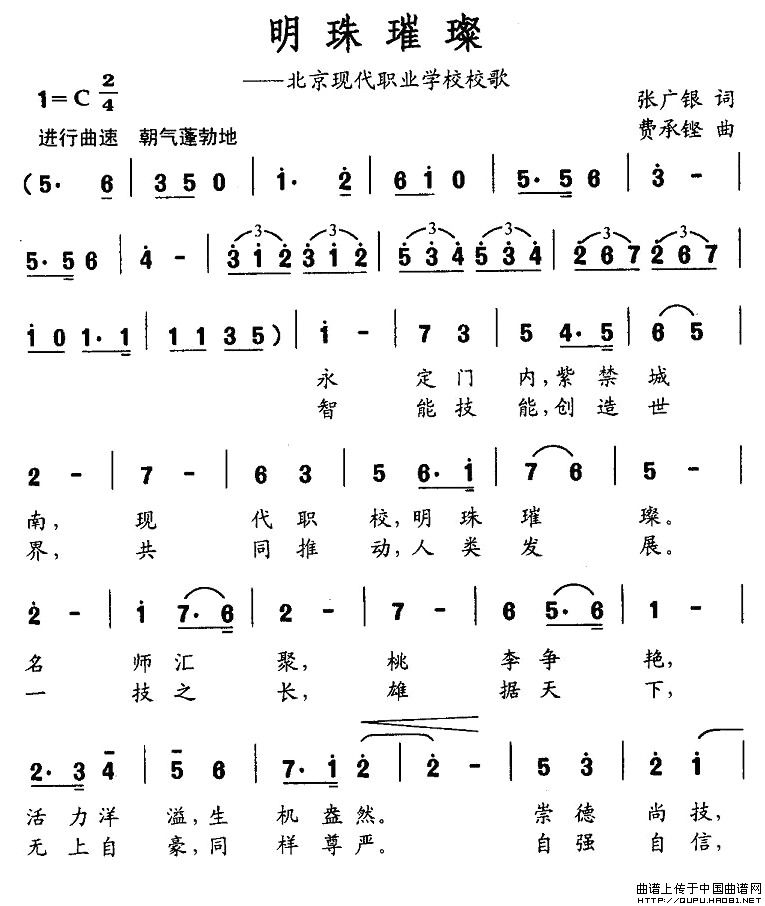 明珠璀璨
——北京现代职业学校校歌
1=C 2/4
张广银 词
进行曲速 朝气蓬勃地
费承铿 曲
(5· 6 | 3 5 0 | i· 2 | 6 i 0 | 5· 5 6 | 3 - |
5· 5 6 | 4 - | 3 i 2 3 i 2 | 5 3 4 5 3 4 | 2 6 7 2 6 7 |
i 0 1· 1 | 1 1 3 5) | i - | 7 3 | 5 4· 5 | 6 5 |
永 定门 内,紫禁 城
智 能技 能,创造 世
2 - | 7 - | 6 3 | 5 6· i | 7 6 | 5 - |
南, 现 代职 校,明珠 璀 璨。
界, 共 同推 动,人类 发 展。
2 - | i 7· 6 | 2 - | 7 - | 6 5· 6 | 1 - |
名 师汇 聚, 桃 李争 艳,
一 技之 长, 雄 据天 下,
2· 3 4 | 5 6 | 7· i 2 | 2 - | 5 3 | 2 i |
活力洋 溢,生 机盎然。 崇德 尚技,
无上自 豪,同 样尊严。 自强 自信,
曲谱上传于中国曲谱网
HTTP://QUPU.HAO81.NET